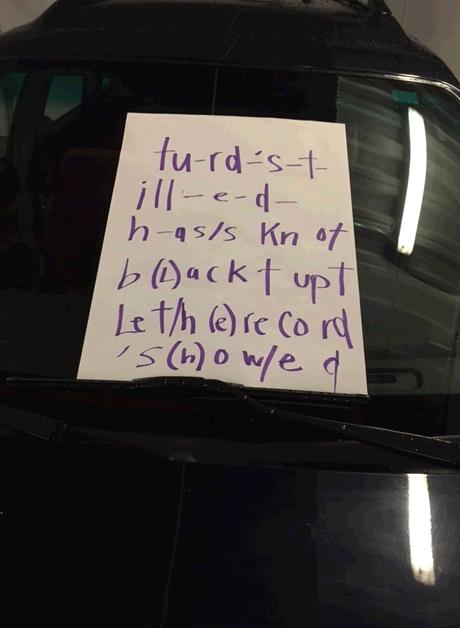 tu-rd-'s-t-
ill-e-d-
h-as/s Kn ot
b(L)ack t upt
Le t/h(e)re co rd
's(h)o w/e d